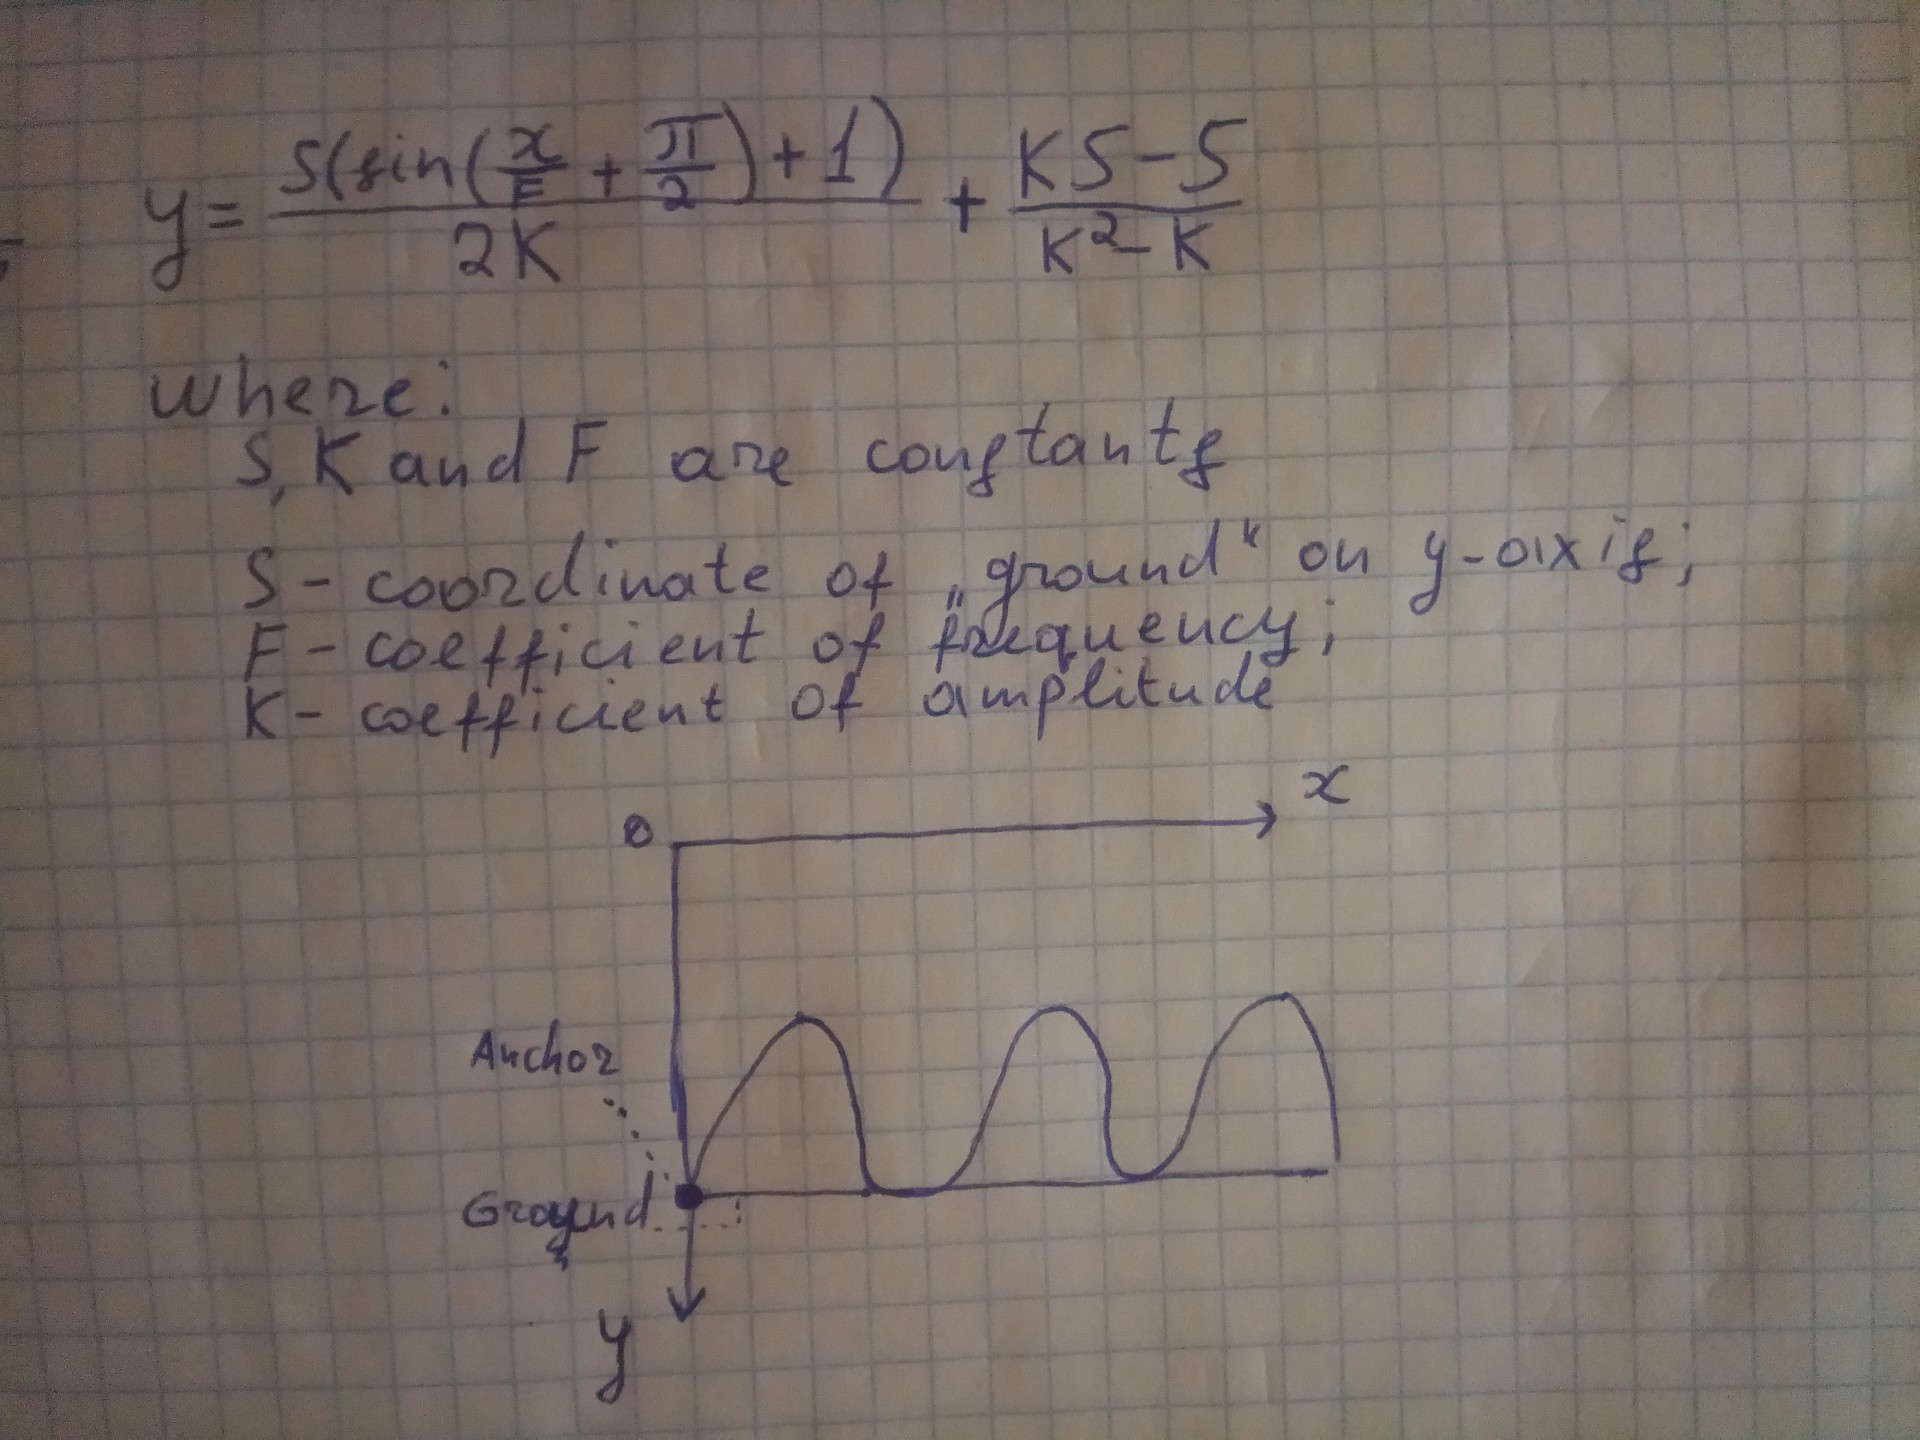 y = S(sin(x/F + π/2) + 1) / 2K + KS - S / K² - K
where:
S, K and F are constants
S - coordinate of „ground“ on y-axis;
F - coefficient of frequency;
K - coefficient of amplitude
0
x
Anchor
Ground
y